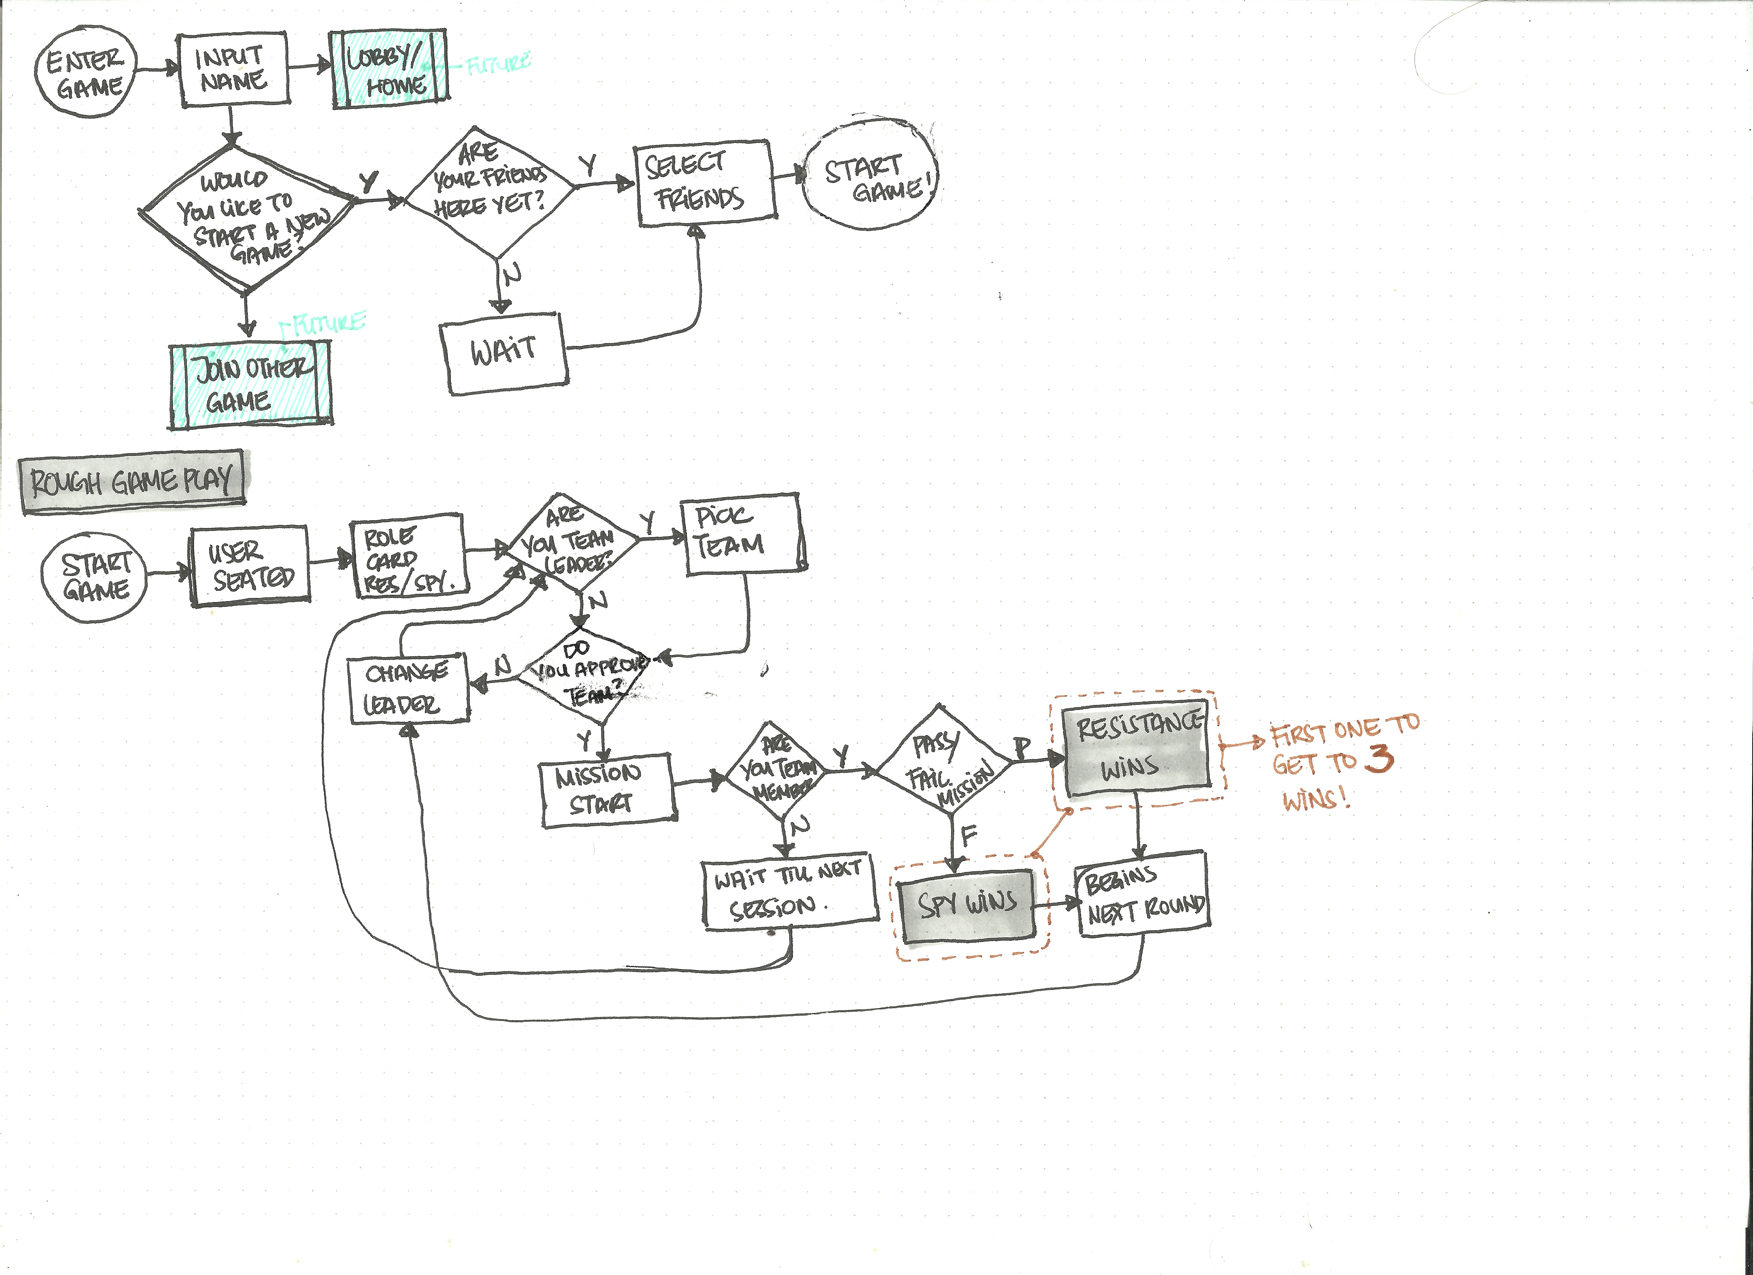 ENTER
GAME
INPUT
NAME
LOBBY/
HOME
FUTURE
WOULD
YOU LIKE TO
START A NEW
GAME?
Y
ARE
YOUR FRIENDS
HERE YET?
Y
SELECT
FRIENDS
START
GAME!
N
WAIT
FUTURE
JOIN OTHER
GAME
ROUGH GAME PLAY
START
GAME
USER
SEATED
ROLE
CARD
RES/SPY.
ARE
YOU TEAM
LEADER?
Y
PICK
TEAM
N
DO
YOU APPROVE
TEAM?
N
CHANGE
LEADER
Y
MISSION
START
ARE
YOU TEAM
MEMBER
Y
PASS/
FAIL
MISSION
P
RESISTANCE
WINS
FIRST ONE TO
GET TO 3
WINS!
N
WAIT TILL NEXT
SESSION.
F
SPY WINS
BEGINS
NEXT ROUND